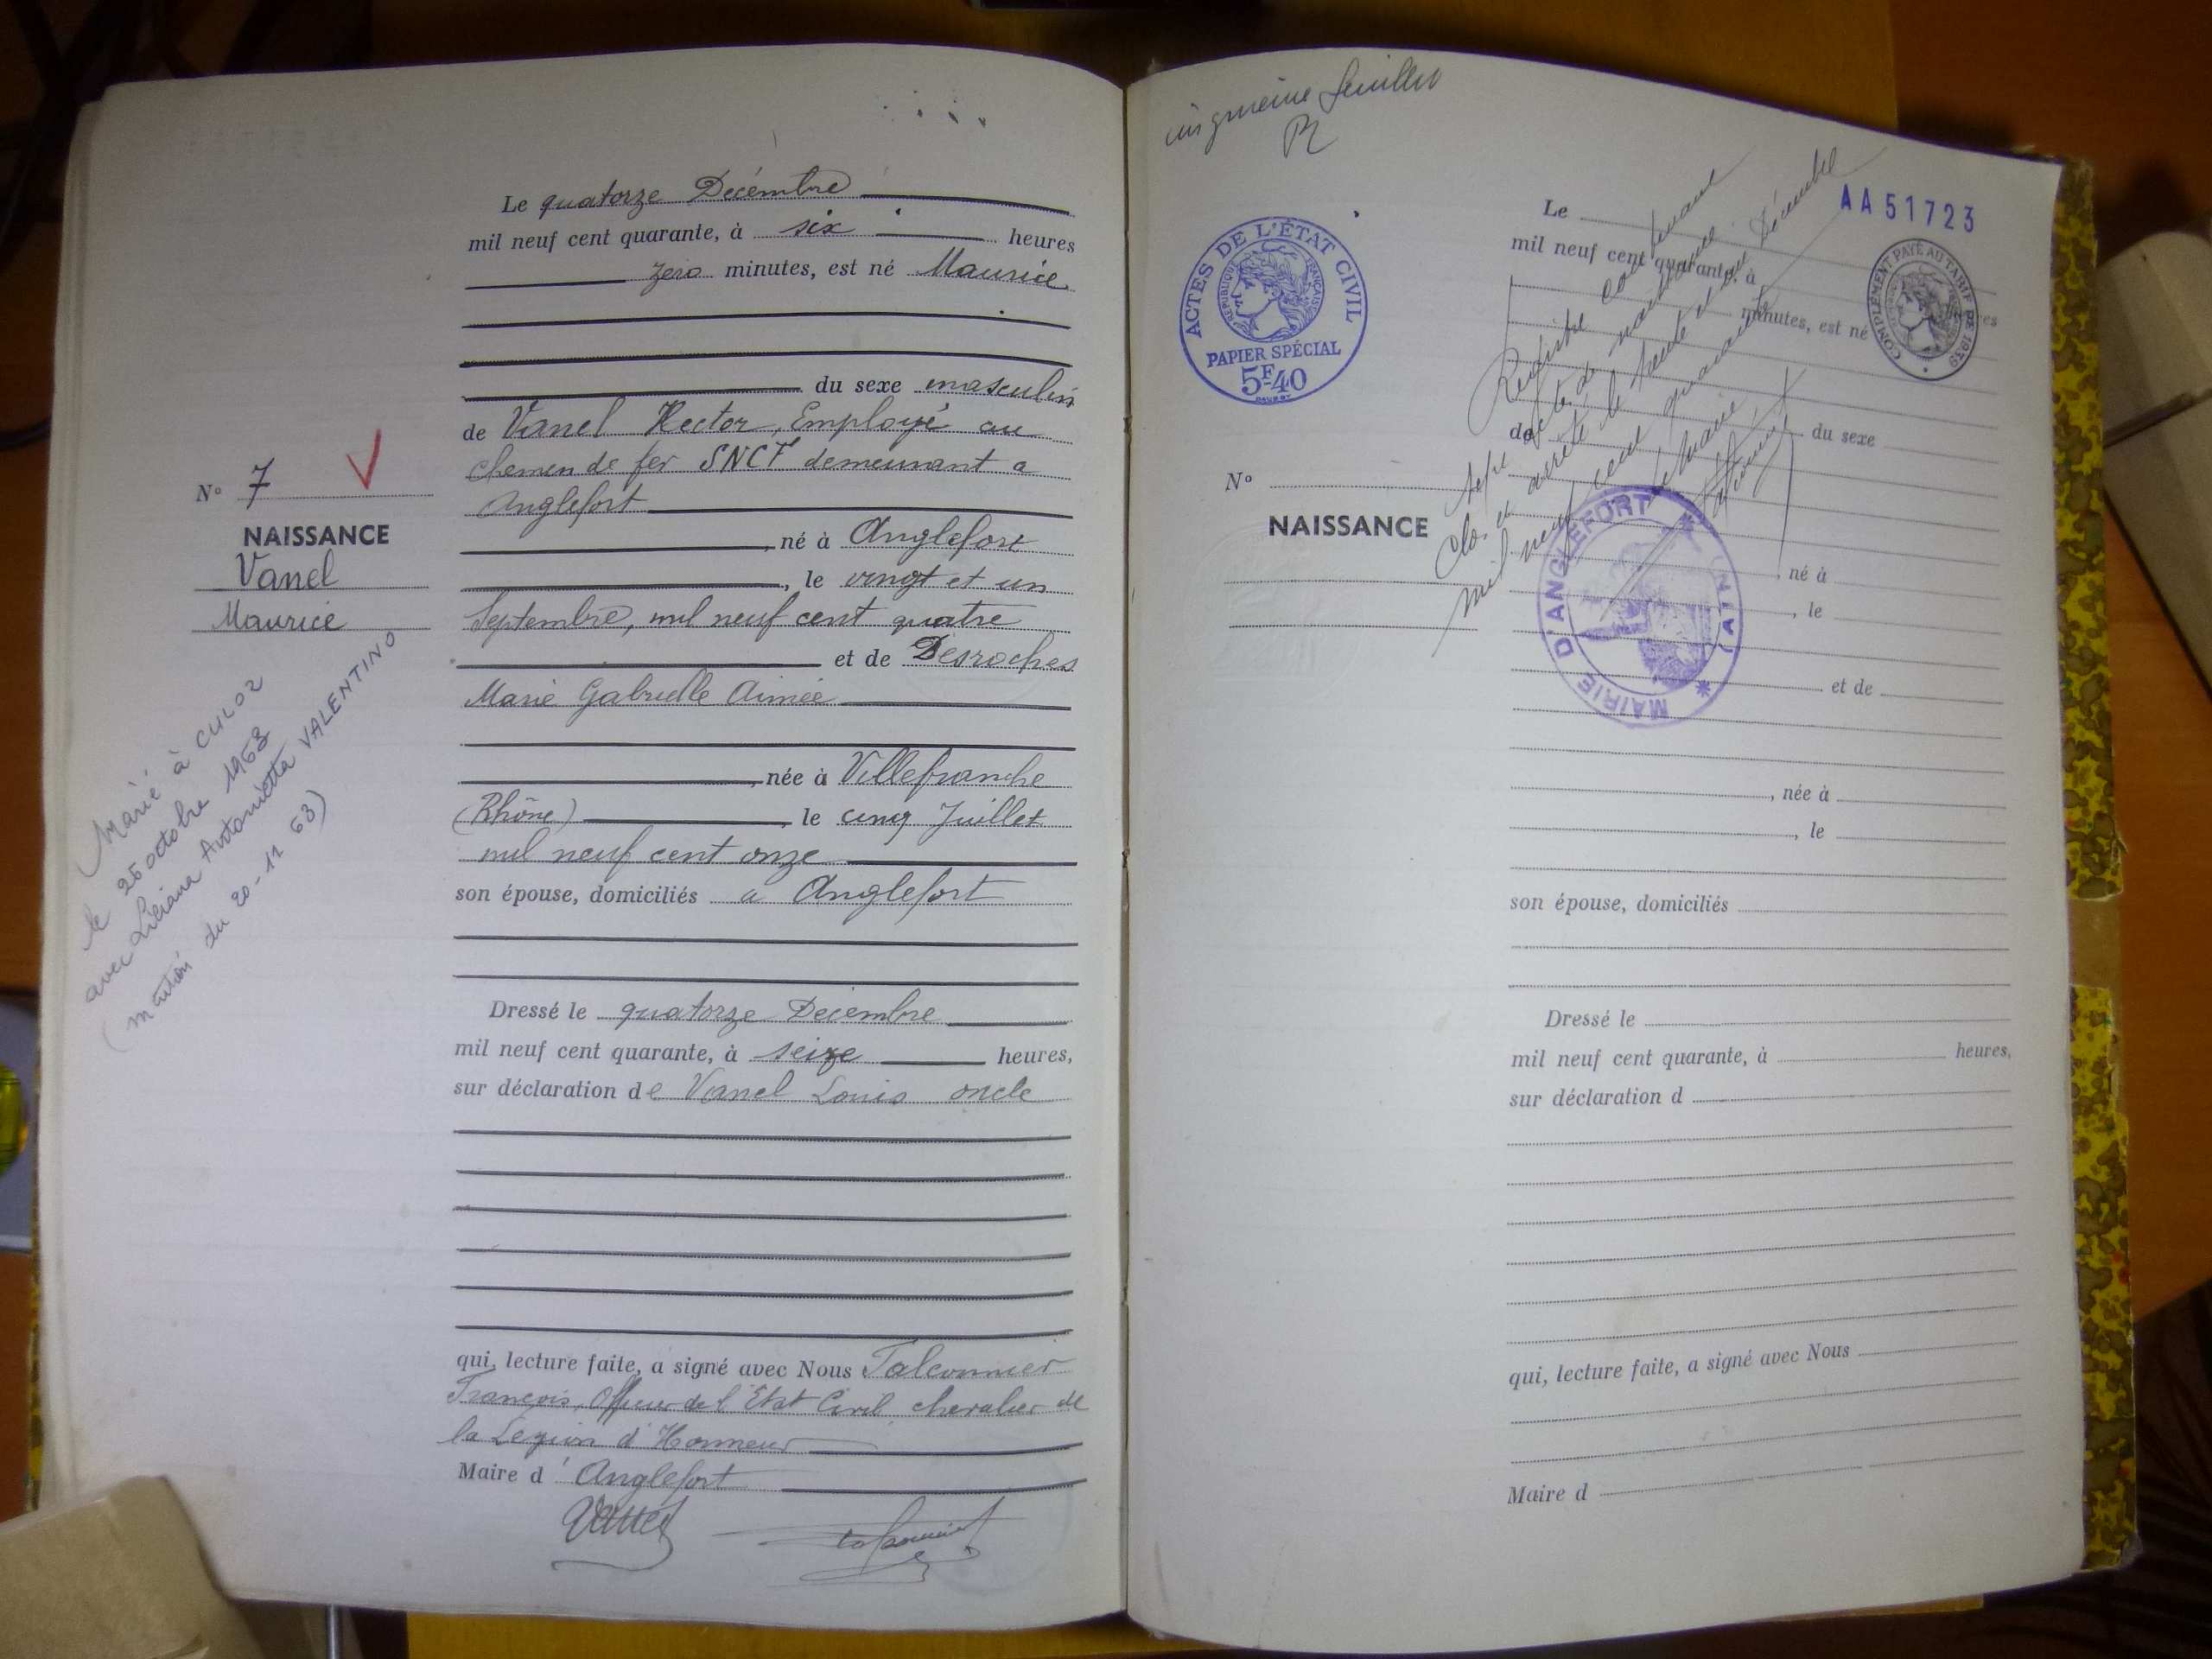 Le quatorze Décembre
mil neuf cent quarante, à six heures
zéro minutes, est né Maurice
du sexe masculin
de Vanel Hector, Employé au
chemin de fer SNCF demeurant a
Anglefort
, né à Anglefort
, le vingt et un
Septembre, mil neuf cent quatre
et de Desroches
Marie Gabrielle Aimée
, née à Villefranche
(Rhône), le cinq Juillet
mil neuf cent onze
son épouse, domiciliés a Anglefort
Dressé le quatorze Décembre
mil neuf cent quarante, à seize heures,
sur déclaration de Vanel Louis oncle
qui, lecture faite, a signé avec Nous Falconnier
François, Officier de l'Etat Civil, chevalier de
la Légion d'Honneur
Maire d'Anglefort
Vanel
N° 7
NAISSANCE
Vanel
Maurice
Marié à CULOZ
le 26 octobre 1963
avec Liliana Antonietta VALENTINO
(mention du 20-11 63)
feuillet
AA51723
ACTES DE L'ÉTAT CIVIL
RÉPUBLIQUE FRANÇAISE
PAPIER SPÉCIAL
5F40
COMPLÉMENT PAYÉ AU TARIF DE 1939
Registre contenant
sept actes de naissance
clos et arrêté le trente et un Décembre
mil neuf cent quarante
Le Maire
MAIRIE D'ANGLEFORT (AIN)
Le
mil neuf cent quarante, à
heures
minutes, est né
du sexe
de
N°
NAISSANCE
, né à
, le
et de
, née à
, le
son épouse, domiciliés
Dressé le
mil neuf cent quarante, à heures,
sur déclaration d
qui, lecture faite, a signé avec Nous
Maire d